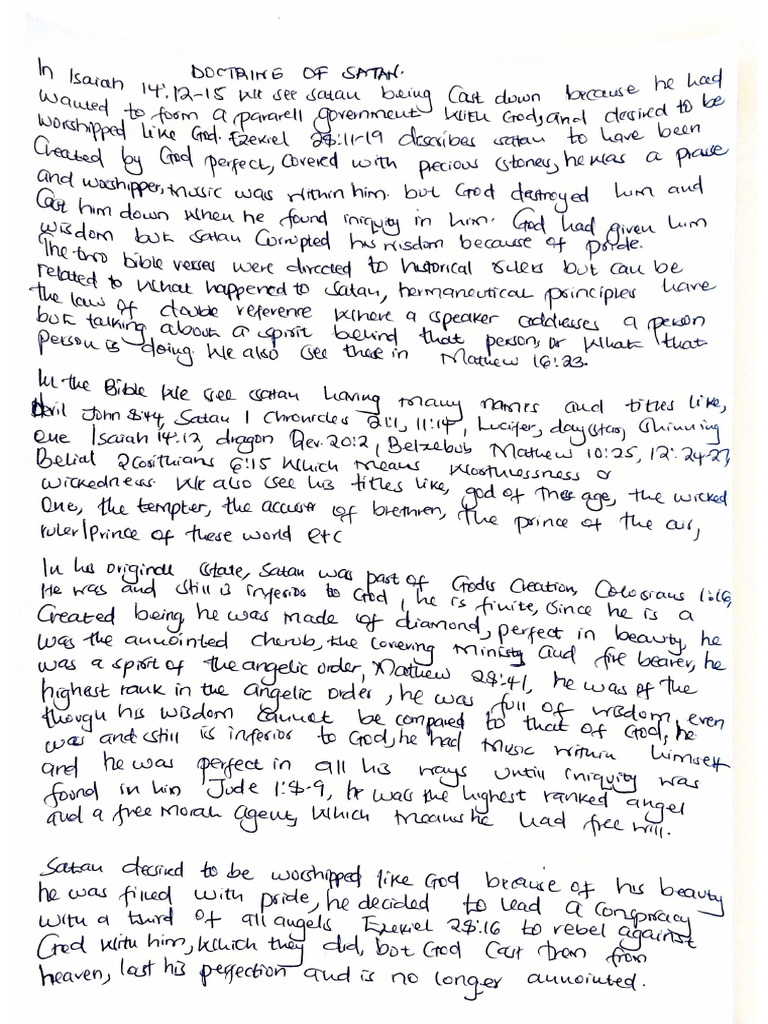 DOCTRINE OF SATAN.
In Isaiah 14:12-15 we see satan being Cast down because he had
wanted to form a pararell government with God, and desired to be
worshipped like God. Ezekiel 28:11-19 describes satan to have been
Created by God perfect, Covered with precious stones, he was a praise
and worshipper, music was within him. but God destroyed him and
Cast him down when he found iniquity in him. God had given him
wisdom but satan Corrupted his wisdom because of pride.
The two bible verses were directed to historical rulers but can be
related to what happened to satan, hermaneutical principles have
the law of double reference where a speaker addresses a person
but talking about a spirit behind that person, or what that
person is doing. We also see these in Mathew 16:23.
In the Bible we see satan having many names and titles like,
Devil John 8:44, Satan 1 Chronicles 21:1, 11:14, Lucifer, day star, Shinning
one Isaiah 14:12, dragon Rev. 20:2, Belzebub Mathew 10:25, 12:24-27,
Belial 2 Corithians 6:15 which means worthlessness or
wickedness. We also see his titles like, god of this age, the wicked
One, the tempter, the accuser of brethren, The prince of the air,
ruler/Prince of these world etc
In his originall state, Satan was part of Gods Creation, Colosians 1:16,
He was and still is inferios to God, he is finite, Since he is a
Created being, he was made of diamond, perfect in beauty, he
was the annointed cherub, the Covering Ministry and fire bearer, he
was a spirit of the angelic order, Mathew 28:41, he was of the
highest rank in the angelic order, he was full of wisdom even
though his wisdom cannot be compared to that of God, he
was and still is inferior to God, he had music within himself
and he was perfect in all his ways until iniquity was
found in him Jude 1:8-9, he was the highest ranked angel
and a free moral agent, which means he had free will.
Satan desired to be worshipped like God because of his beauty
he was filled with pride, he decided to lead a conspiracy
with a third of all angels Ezekiel 28:16 to rebel against
God with him, which they did, but God Cast them from
heaven, last his perfection and is no longer annointed.